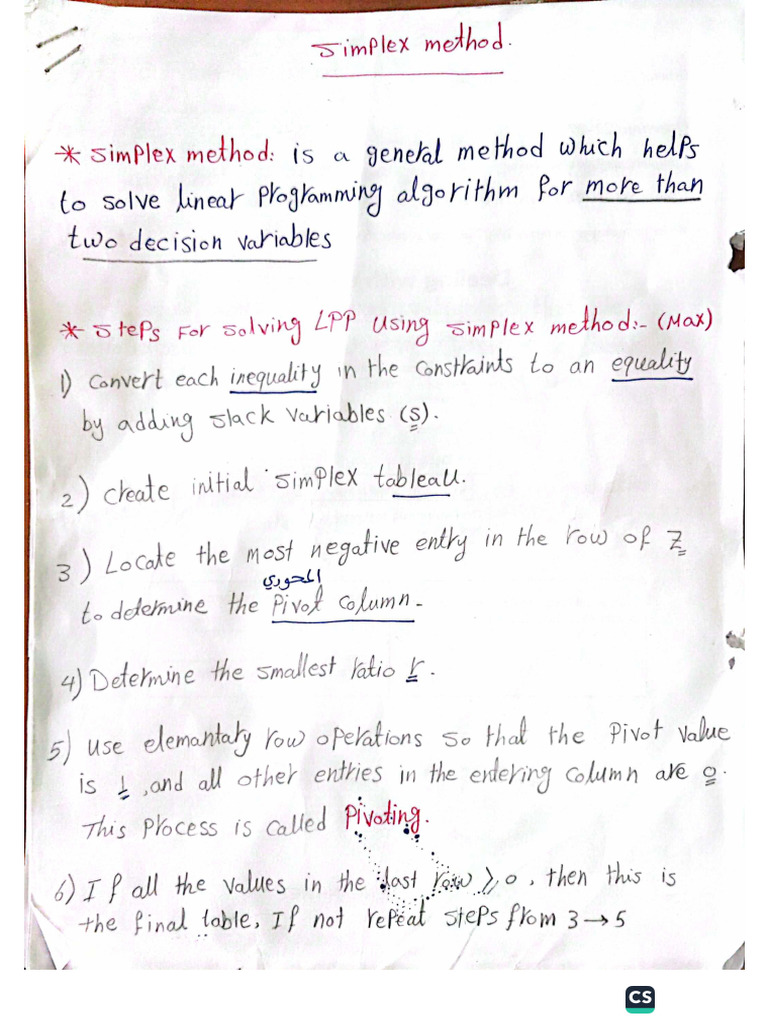 Simplex method.
* Simplex method: is a general method which helps
to solve linear Programming algorithm for more than
two decision variables
* Steps For Solving LPP Using Simplex method:- (Max)
1) Convert each inequality in the constraints to an equality
by adding slack variables (s).
2) Create initial simplex tableau.
3) Locate the most negative entry in the row of Z
المحوري
to determine the Pivot column.
4) Determine the smallest ratio r.
5) Use elemantary row operations so that the Pivot value
is 1, and all other entries in the entering column are 0.
This Process is called Pivoting.
6) If all the values in the last row ≥ 0, then this is
the final table, If not repeat steps from 3 → 5
CS